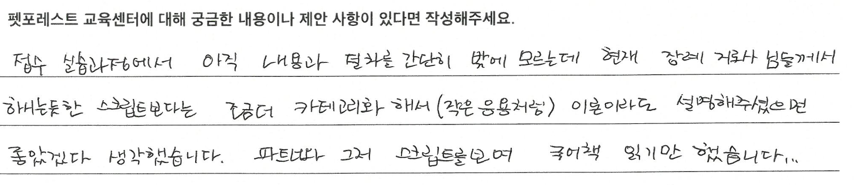 펫포레스트 교육센터에 대해 궁금한 내용이나 제안 사항이 있다면 작성해주세요.
접수 실습과정에서 아직 내용과 절차를 간단히 밖에 모르는데 현재 장례 지도사 님들께서
하시는듯한 스크립트보다는 조금더 카테고리화 해서 (작은 응용처럼) 이론이라도 설명해주셨으면
좋았겠다 생각했습니다. 파트너와 그저 스크립트를보며 국어책 읽기만 했습니다...